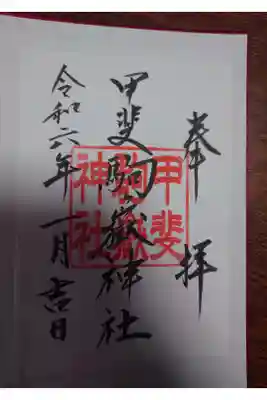 奉拝
甲斐駒嶽神社
甲斐
駒嶽
神社
令和六年一月吉日